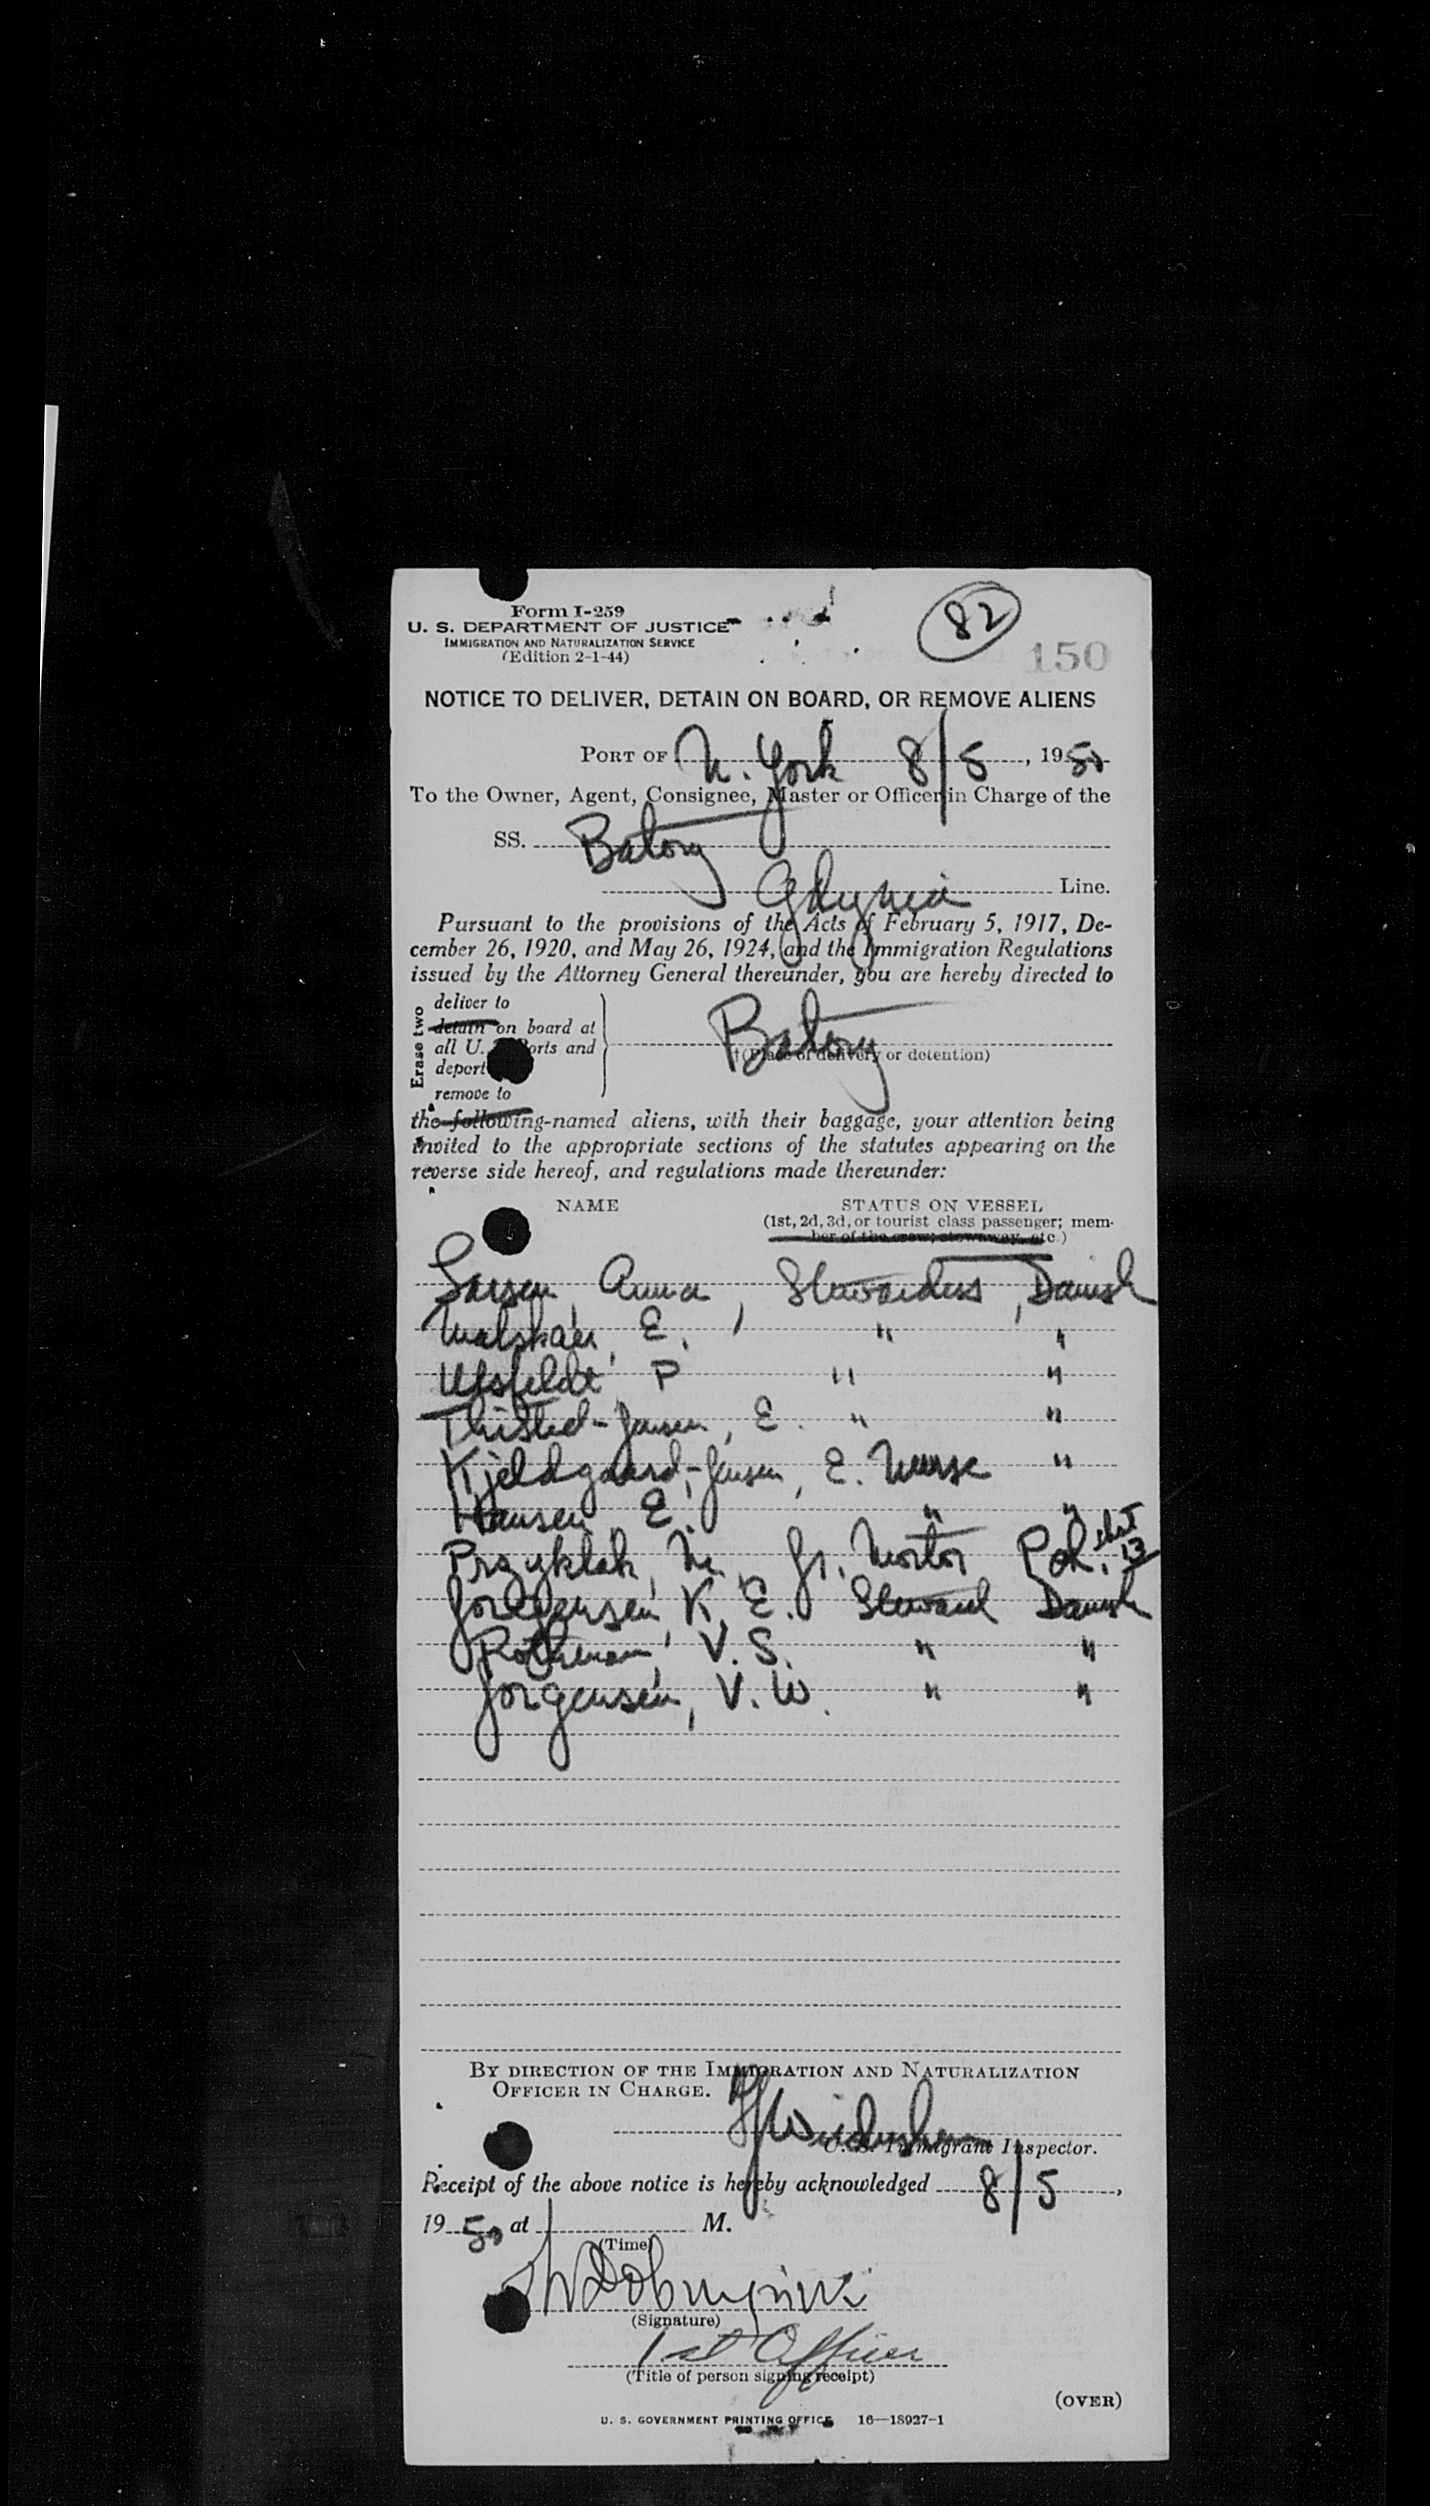 Form I-259
U. S. DEPARTMENT OF JUSTICE
IMMIGRATION AND NATURALIZATION SERVICE
(Edition 2-1-44)
82
150
NOTICE TO DELIVER, DETAIN ON BOARD, OR REMOVE ALIENS
PORT OF N. York 8/5, 1950
To the Owner, Agent, Consignee, Master or Officer in Charge of the
SS. Batory
Gdynia Line.
Pursuant to the provisions of the Acts of February 5, 1917, De-
cember 26, 1920, and May 26, 1924, and the Immigration Regulations
issued by the Attorney General thereunder, you are hereby directed to
Erase two
deliver to
detain on board at
all U. S. ports and
deport
remove to
Batory
†(Place of delivery or detention)
the following-named aliens, with their baggage, your attention being
invited to the appropriate sections of the statutes appearing on the
reverse side hereof, and regulations made thereunder:
NAME STATUS ON VESSEL
(1st, 2d, 3d, or tourist class passenger; mem-
ber of the crew; stowaway, etc.)
Larsen, Anna, Stewardess, Danish
E. " "
P " "
Thisted-Jensen, E. " "
Kjeldgaard-Jensen, E. Nurse "
Hansen, E. " "
Przyklak, M., Jr. Pol.
Jorgensen, K. E. Steward Danish
Rothmann, V. S. " "
Jorgensen, V. W. " "
BY DIRECTION OF THE IMMIGRATION AND NATURALIZATION
OFFICER IN CHARGE.
U. S. Immigrant Inspector.
Receipt of the above notice is hereby acknowledged 8/5,
1950 at M.
(Time)
(Signature)
1st Officer
(Title of person signing receipt)
(OVER)
U. S. GOVERNMENT PRINTING OFFICE 16—18927-1